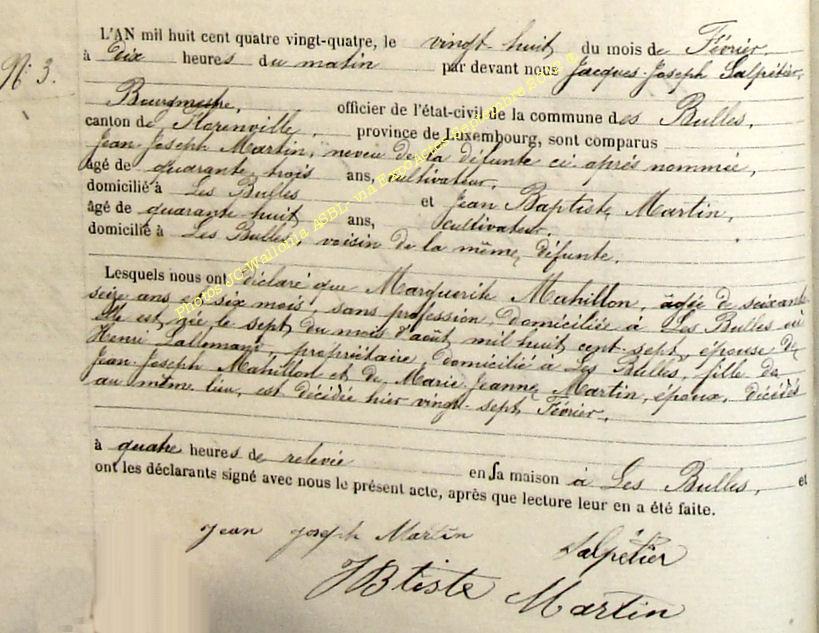 L'AN mil huit cent quatre vingt-quatre, le vingt huit du mois de Février,
N° 3.
à dix heures du matin par devant nous Jacques Joseph Salpétier,
Bourgmestre, officier de l'état-civil de la commune des Bulles,
canton de Florenville, province de Luxembourg, sont comparus
Jean Joseph Martin, neveu de la défunte ci après nommée,
âgé de quarante trois ans, cultivateur,
domicilié à Les Bulles et Jean Baptiste Martin,
âgé de quarante huit ans, cultivateur,
domicilié à Les Bulles voisin de la même défunte.
Lesquels nous ont déclaré que Marguerite Mahillon, âgée de soixante
seize ans et six mois, sans profession, domiciliée à Les Bulles où
elle est née le sept du mois d'août mil huit cent sept, épouse de
Henri Lallemand, propriétaire, domicilié à Les Bulles, fille de
Jean-Joseph Mahillon et de Marie Jeanne Martin, époux, décédés
au même lieu, est décédée hier vingt-sept Février,
à quatre heures de relevée en sa maison à Les Bulles, et
ont les déclarants signé avec nous le présent acte, après que lecture leur en a été faite.
Jean Joseph Martin Salpétier
JBtiste Martin
Photos JC-Wallonia ASBL, via ExpoActes